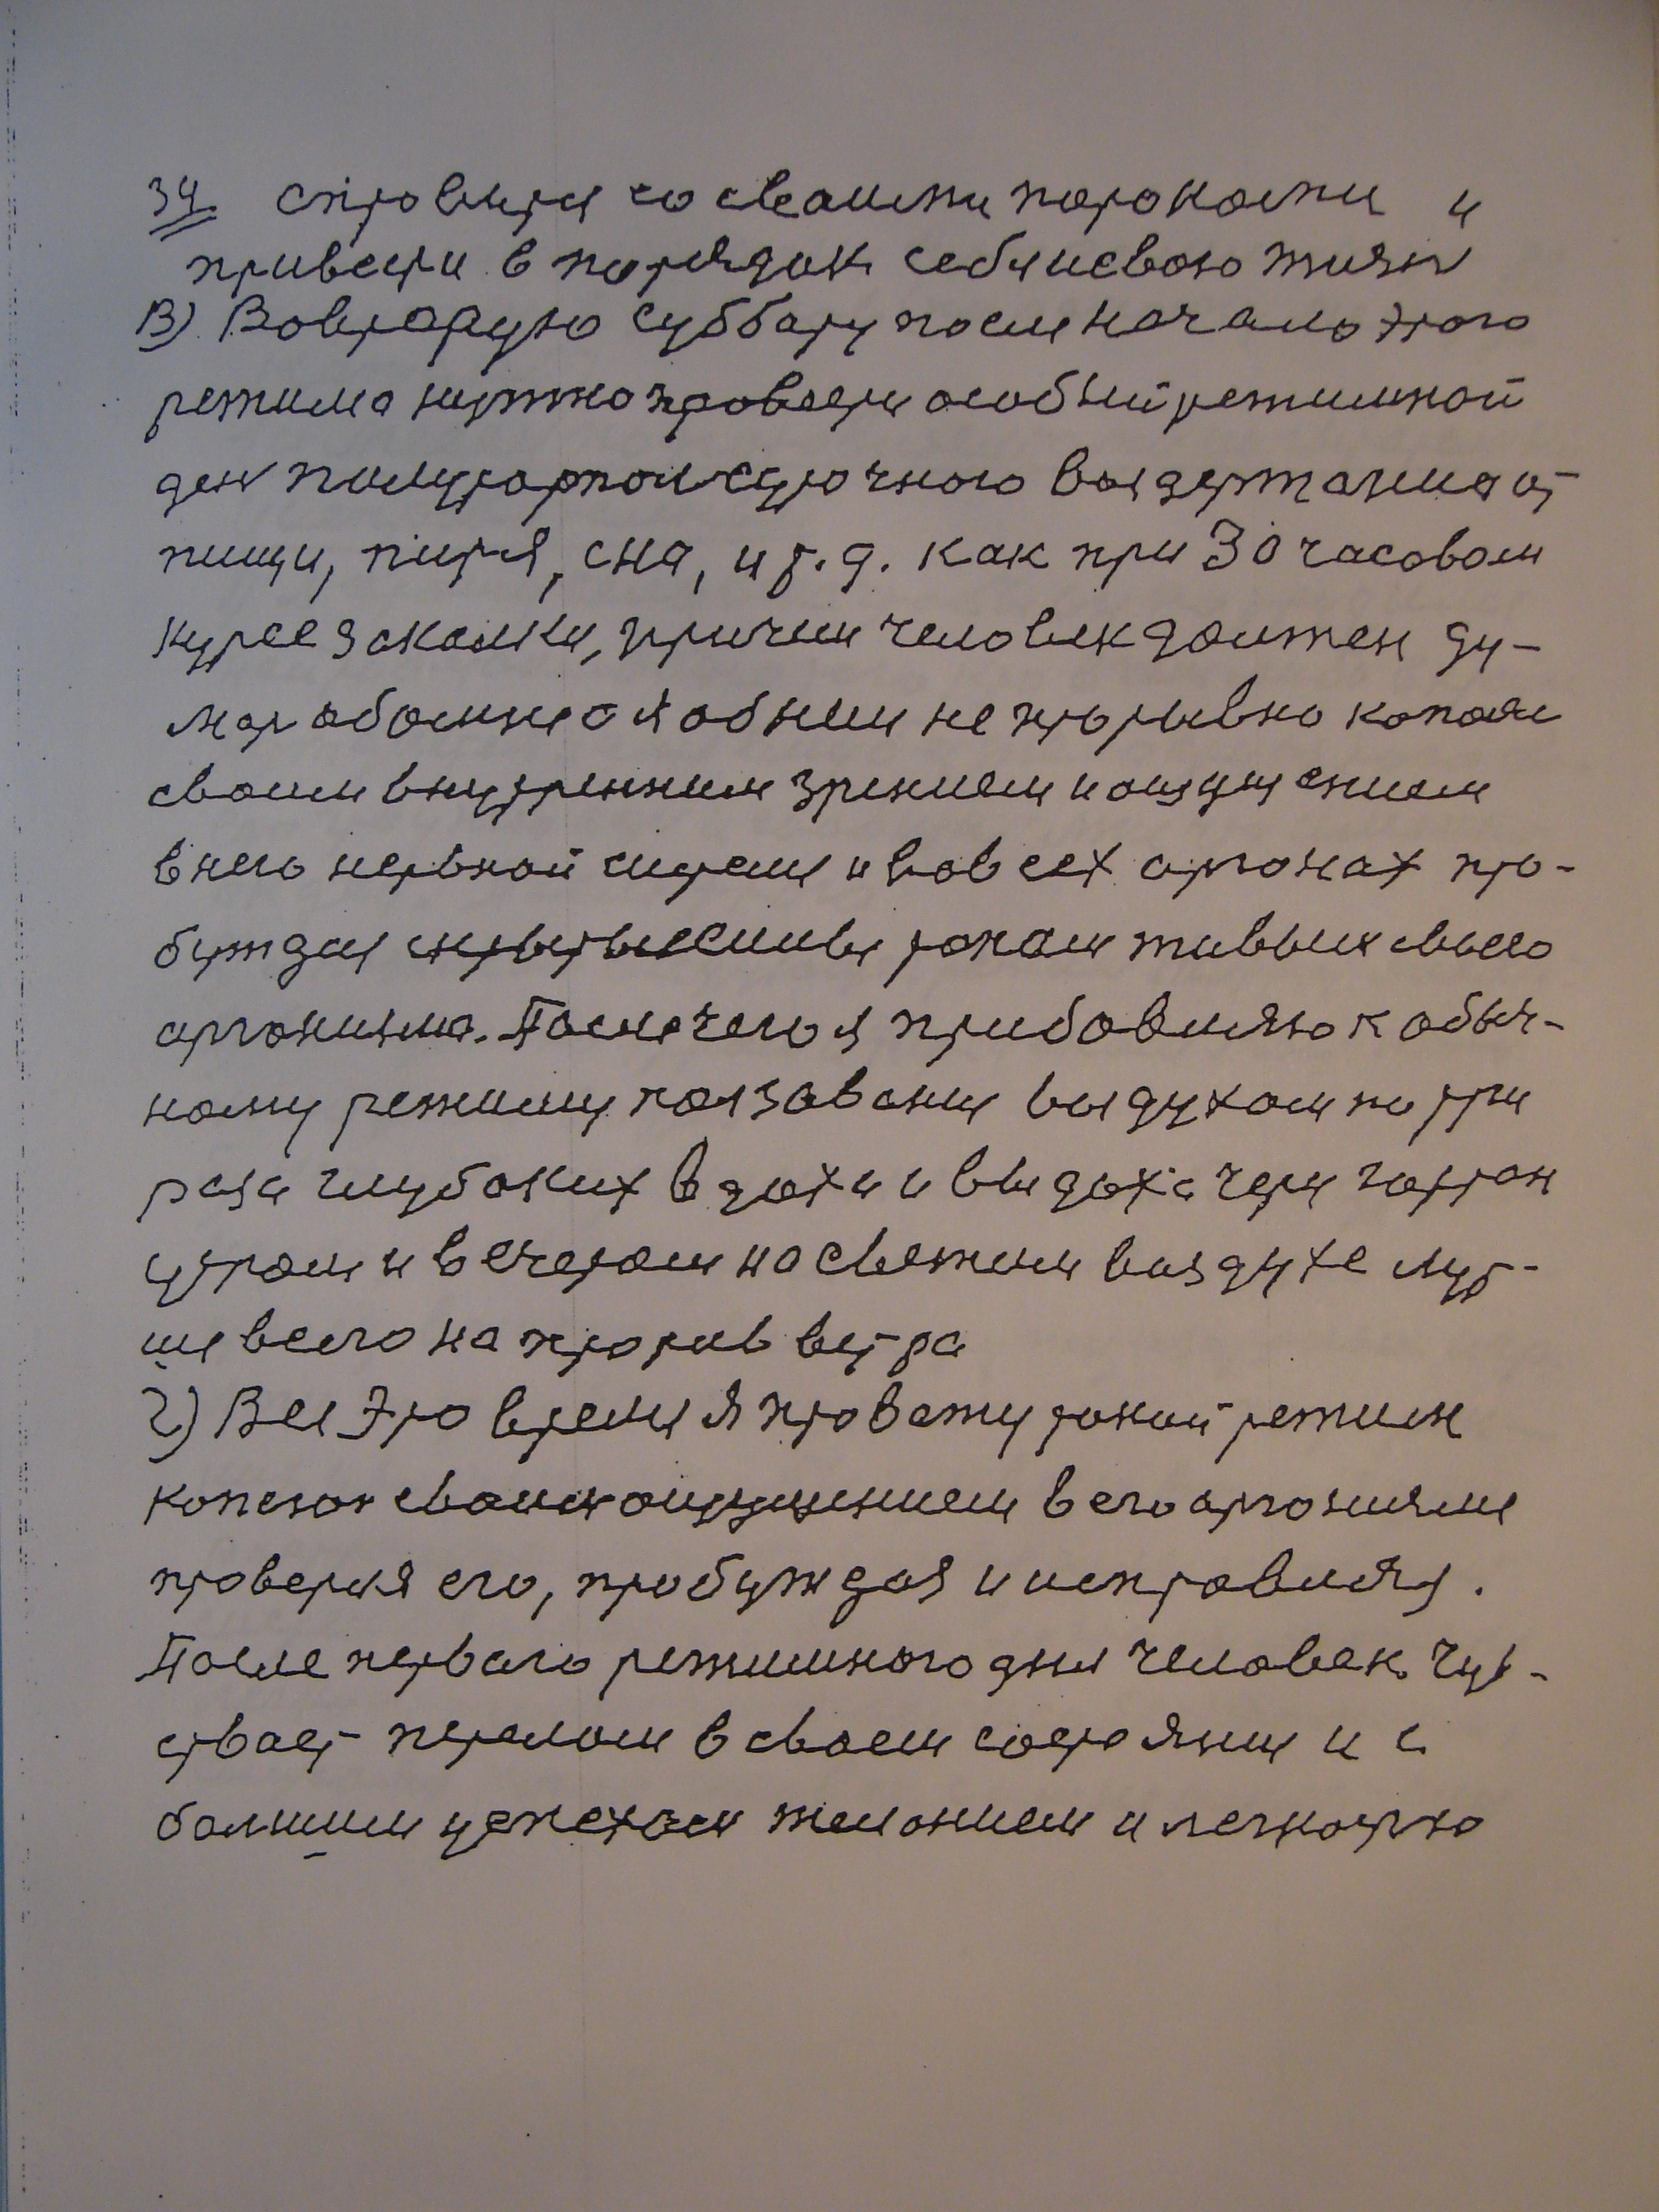 34. справится со своими пороками и
привести в порядок себя и свою жизнь
В) Во вторую субботу после начала этого
режима нужно провести особый режимной
ден полуторасуточного воздержания от
пищи, питя, сна, и т. д. как при 30 часовом
курсе закалки, причем человек должен ду-
мат обо мне а я об нем не прерывно копаяс
своим внутренним зрением и ощущением
в него нервной системе и во всех органах про-
буждая токам живым своего
организма. После чего я прибавляю к обыч-
ному режиму ползования воздухом по три
раза глубоких вдоха и выдоха через гортан
утром и вечером на свежем воздухе луч-
ше всего на против ветра
г) Все это время я провожу такой режим
копаюс своим ощущением в его организме
проверяя его, пробуждая и исправляя.
После первого режимного дня человек чув-
ствает перелом в своем состоянии и с
болшим успехом желанием и легкостю